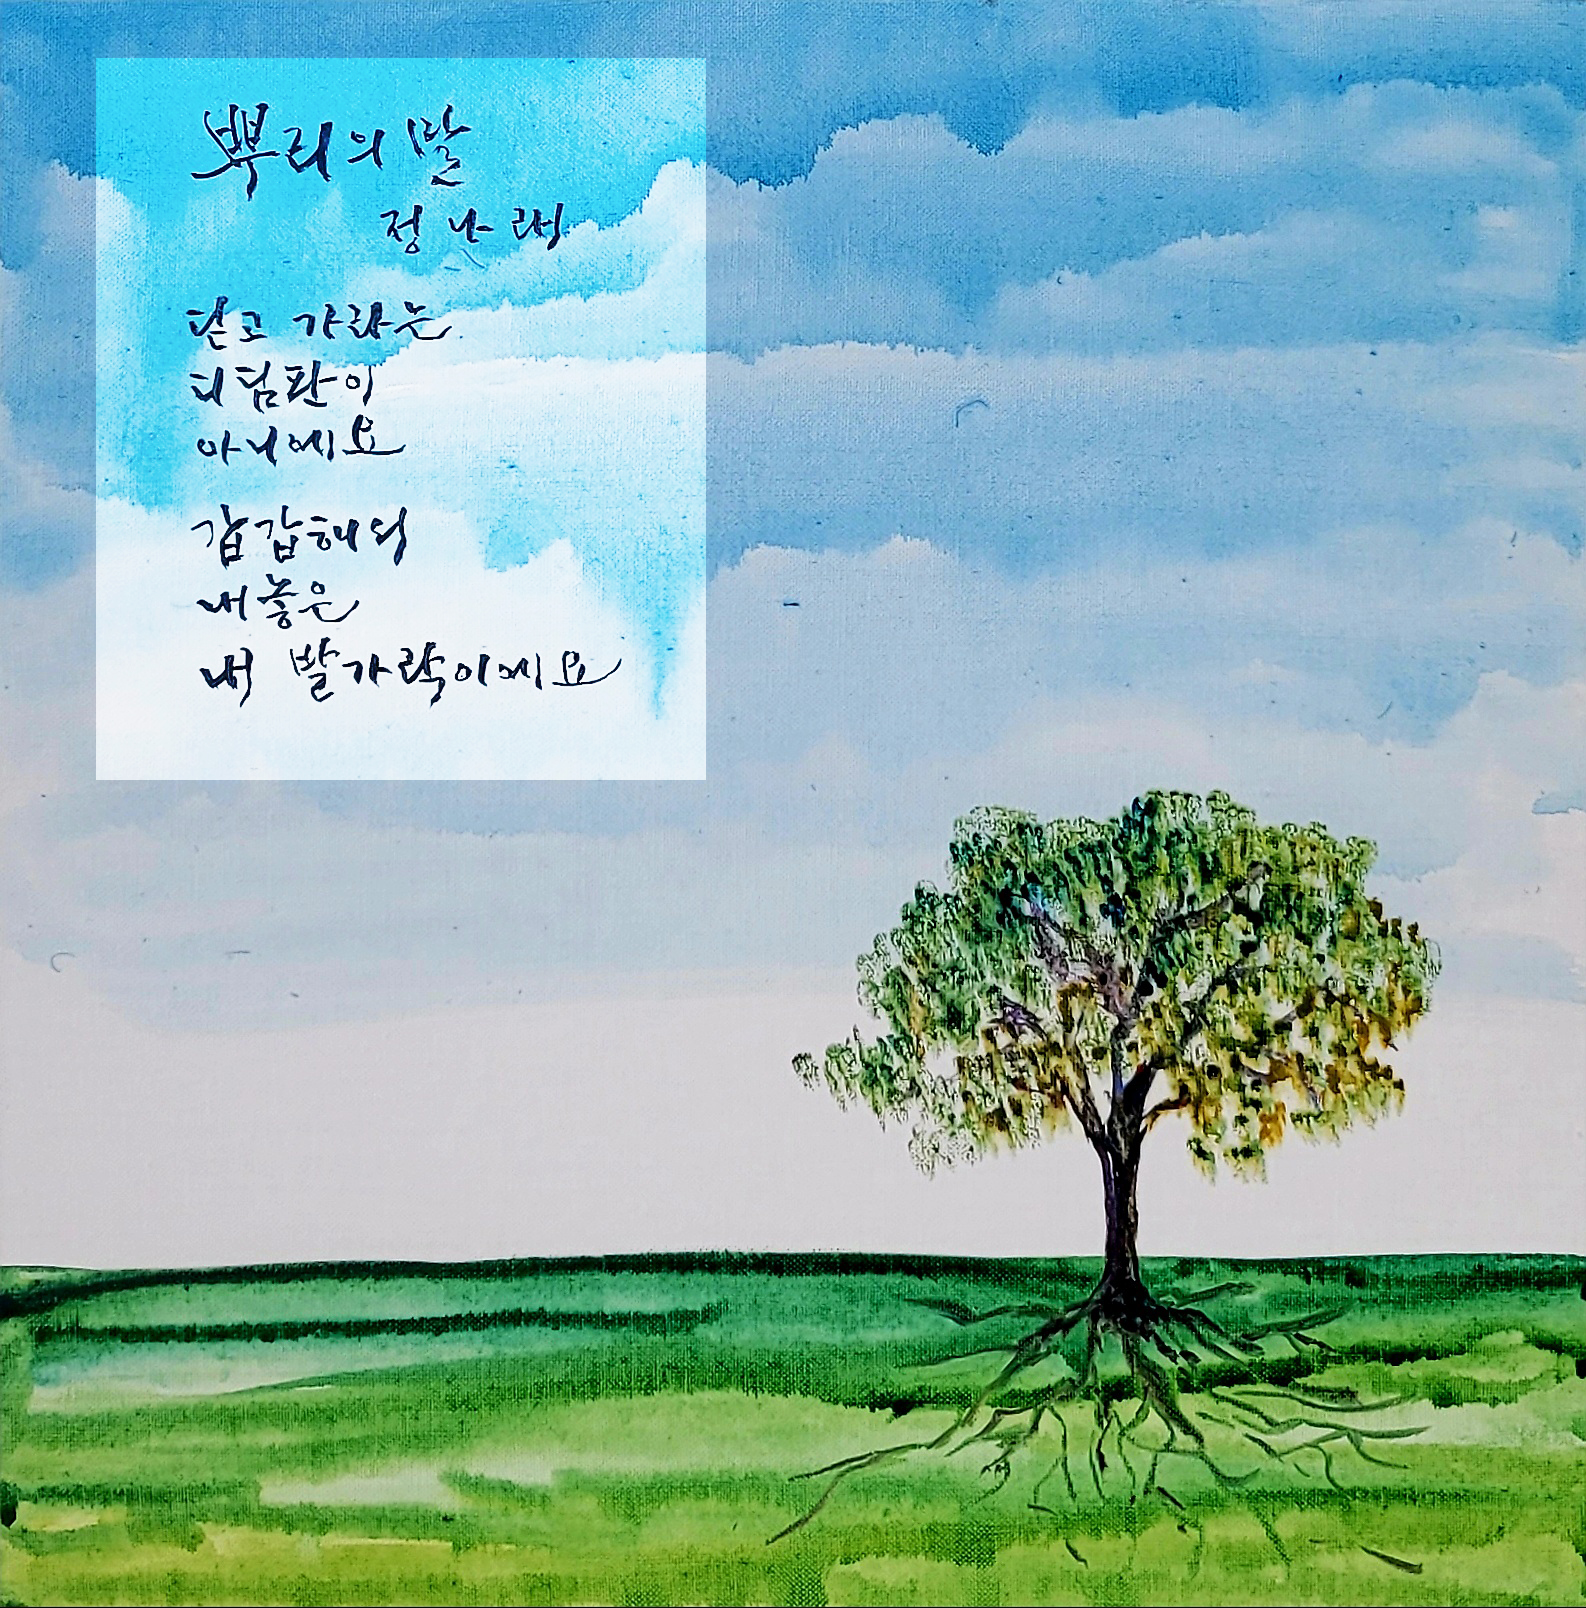 뿌리의 말
정낫래
딛고 가라는
디딤판이
아니에요
갑갑해서
내놓은
내 발가락이에요